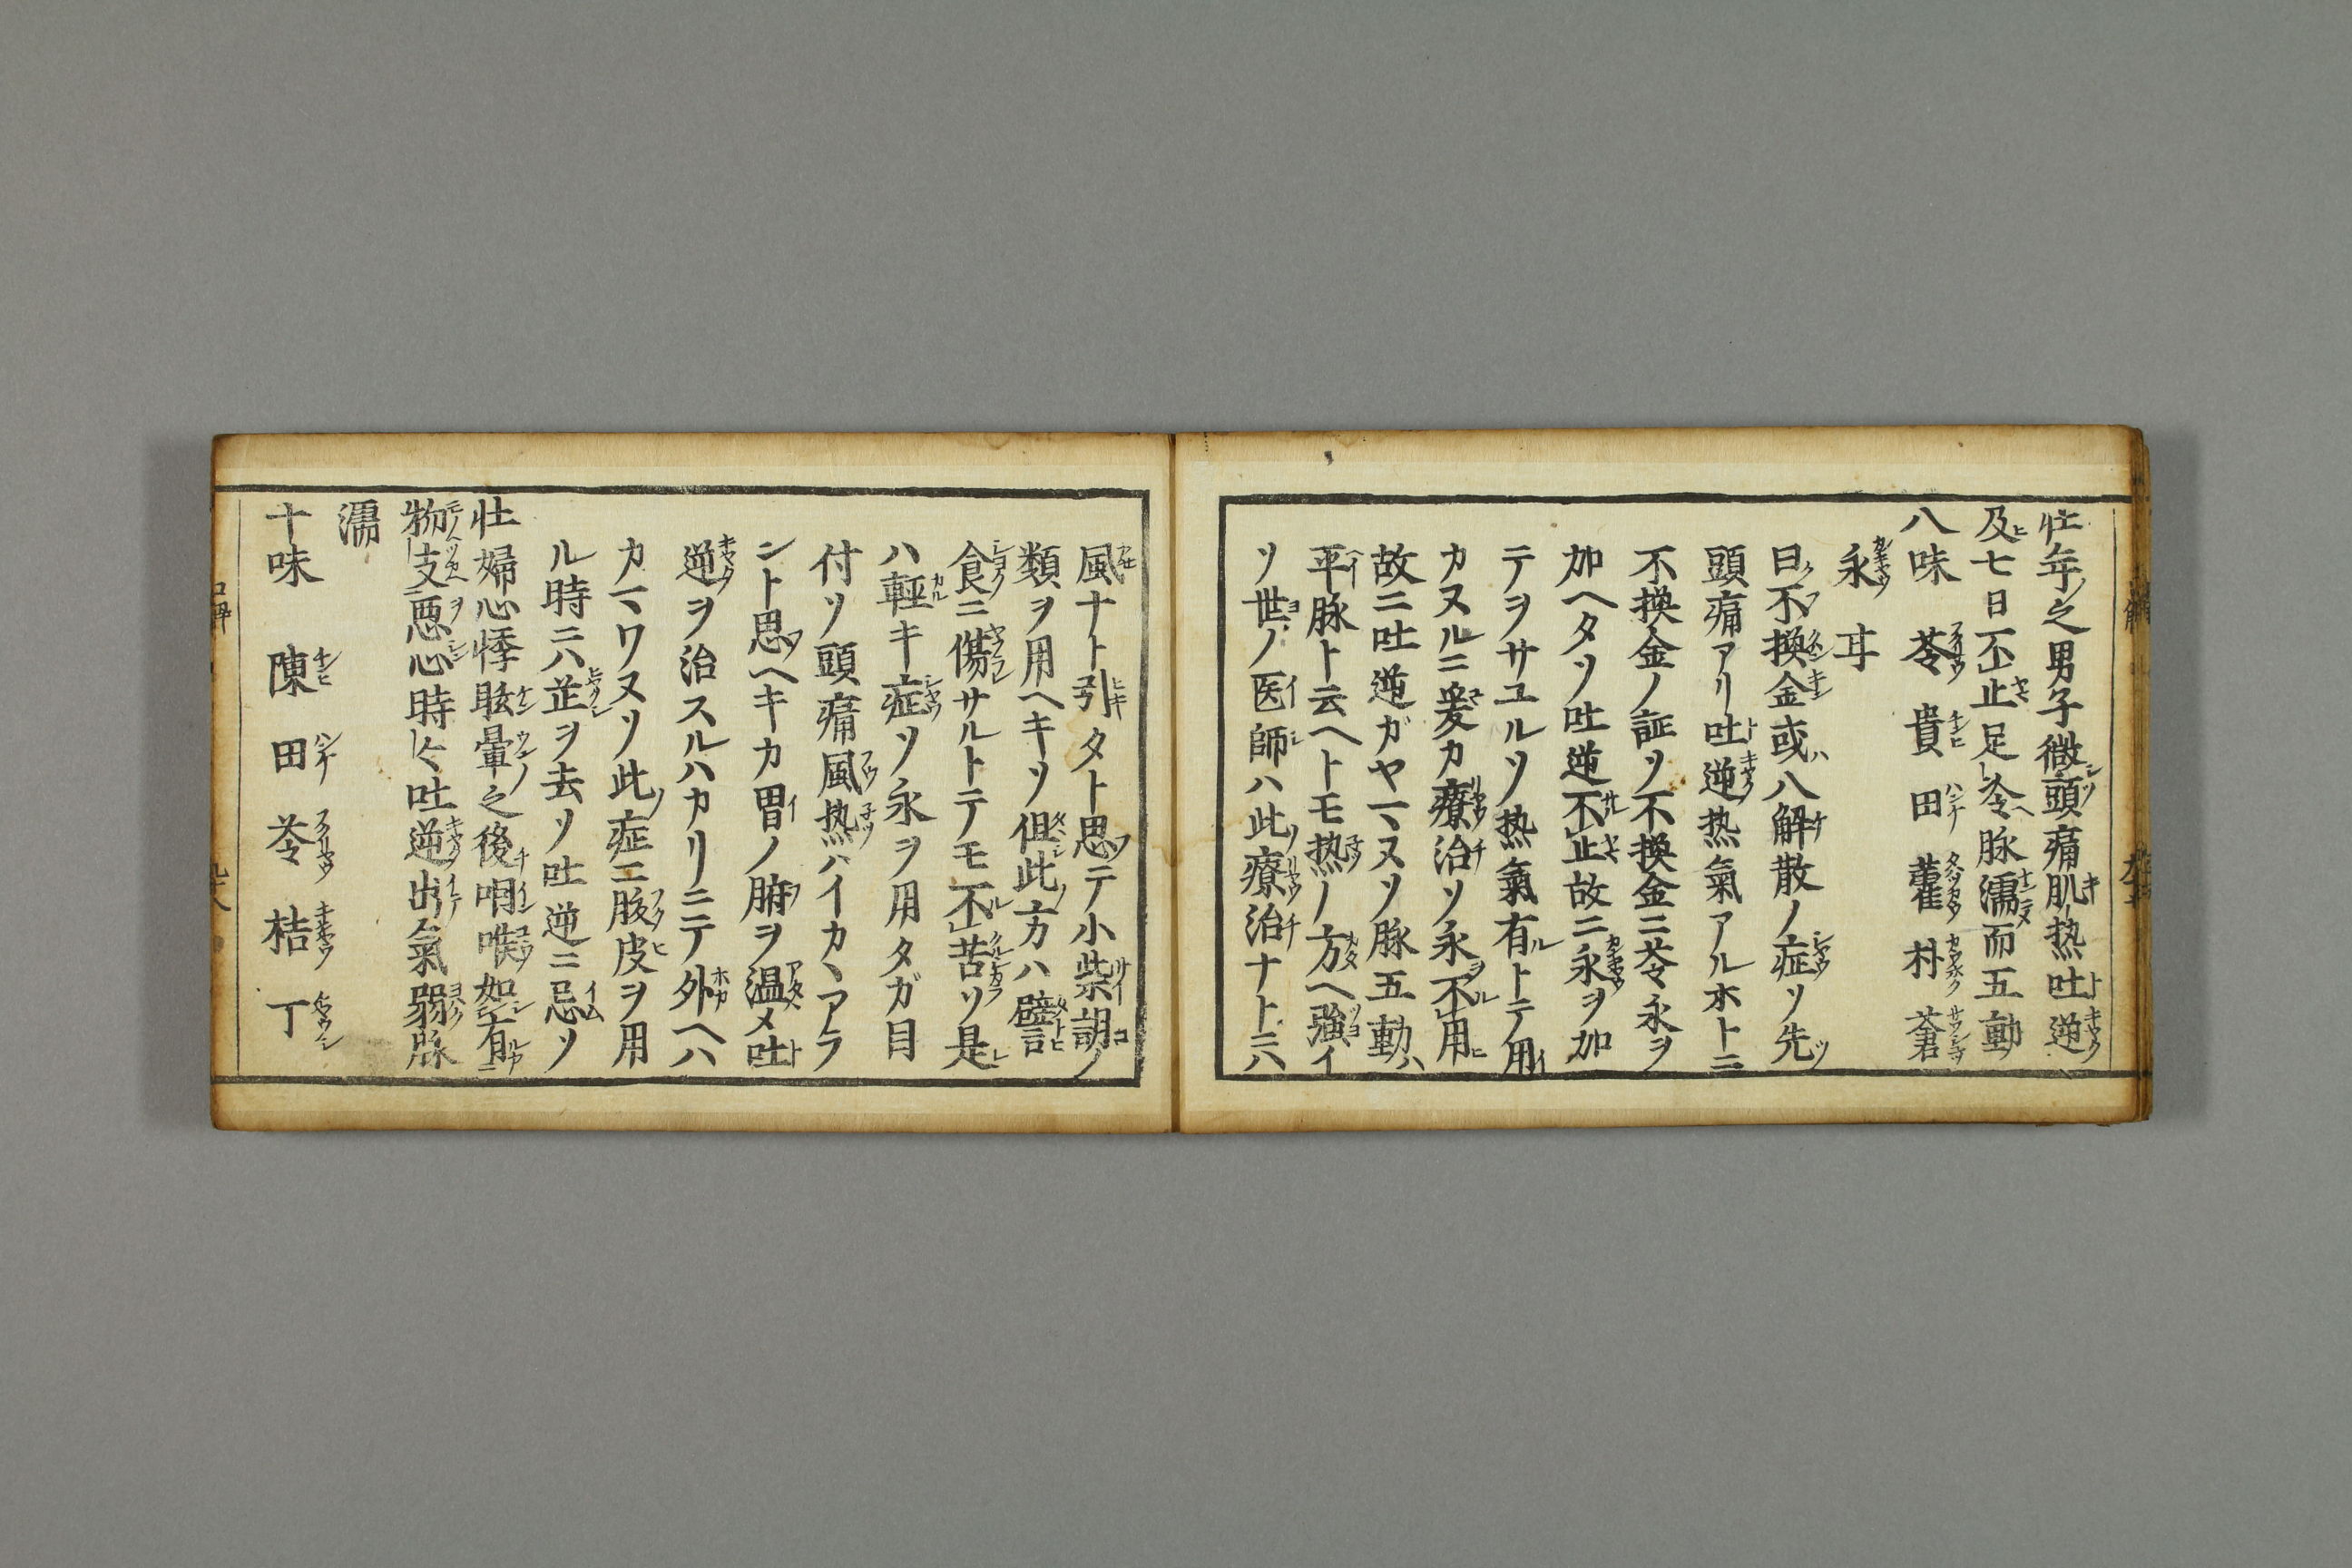 壮年之男子微頭痛肌热吐逆
及七日不止足冷脉濡而五動
八味　苓　貴　田　藿　朴　蒼
永　甘
曰不換金或八解散ノ症ソ先
頭痛アリ吐逆热氣アルホトニ
不換金ノ証ソ不換金ニ苓永ヲ
加ヘタソ吐逆不止故ニ永ヲ加
テヲサユルソ热氣有トテ用
カヌルニ爰カ療治ソ永不用
故ニ吐逆ガヤマヌソ脉五動ハ
平脉ト云ヘトモ热ノ方ヘ強イ
ソ世ノ医師ハ此療治ナトニハ
風ナト引タト思テ小柴胡ノ
類ヲ用ヘキソ但此方ハ譬
食ニ傷サルトテモ不苦ソ是
ハ輕キ症ソ永ヲ用タガ目
付ソ頭痛風热ハイカヽアラ
ント思ヘキカ胃ノ腑ヲ温メ吐
逆ヲ治スルハカリニテ外ヘハ
カマワヌソ此症ニ腹皮ヲ用
ル時ニハ芷ヲ去ソ吐逆ニ忌ソ
壮婦心悸眩暈之後咽喉如有
物支悪心時々吐逆出氣弱脉
濡
十味　陳　田　苓　桔　丁